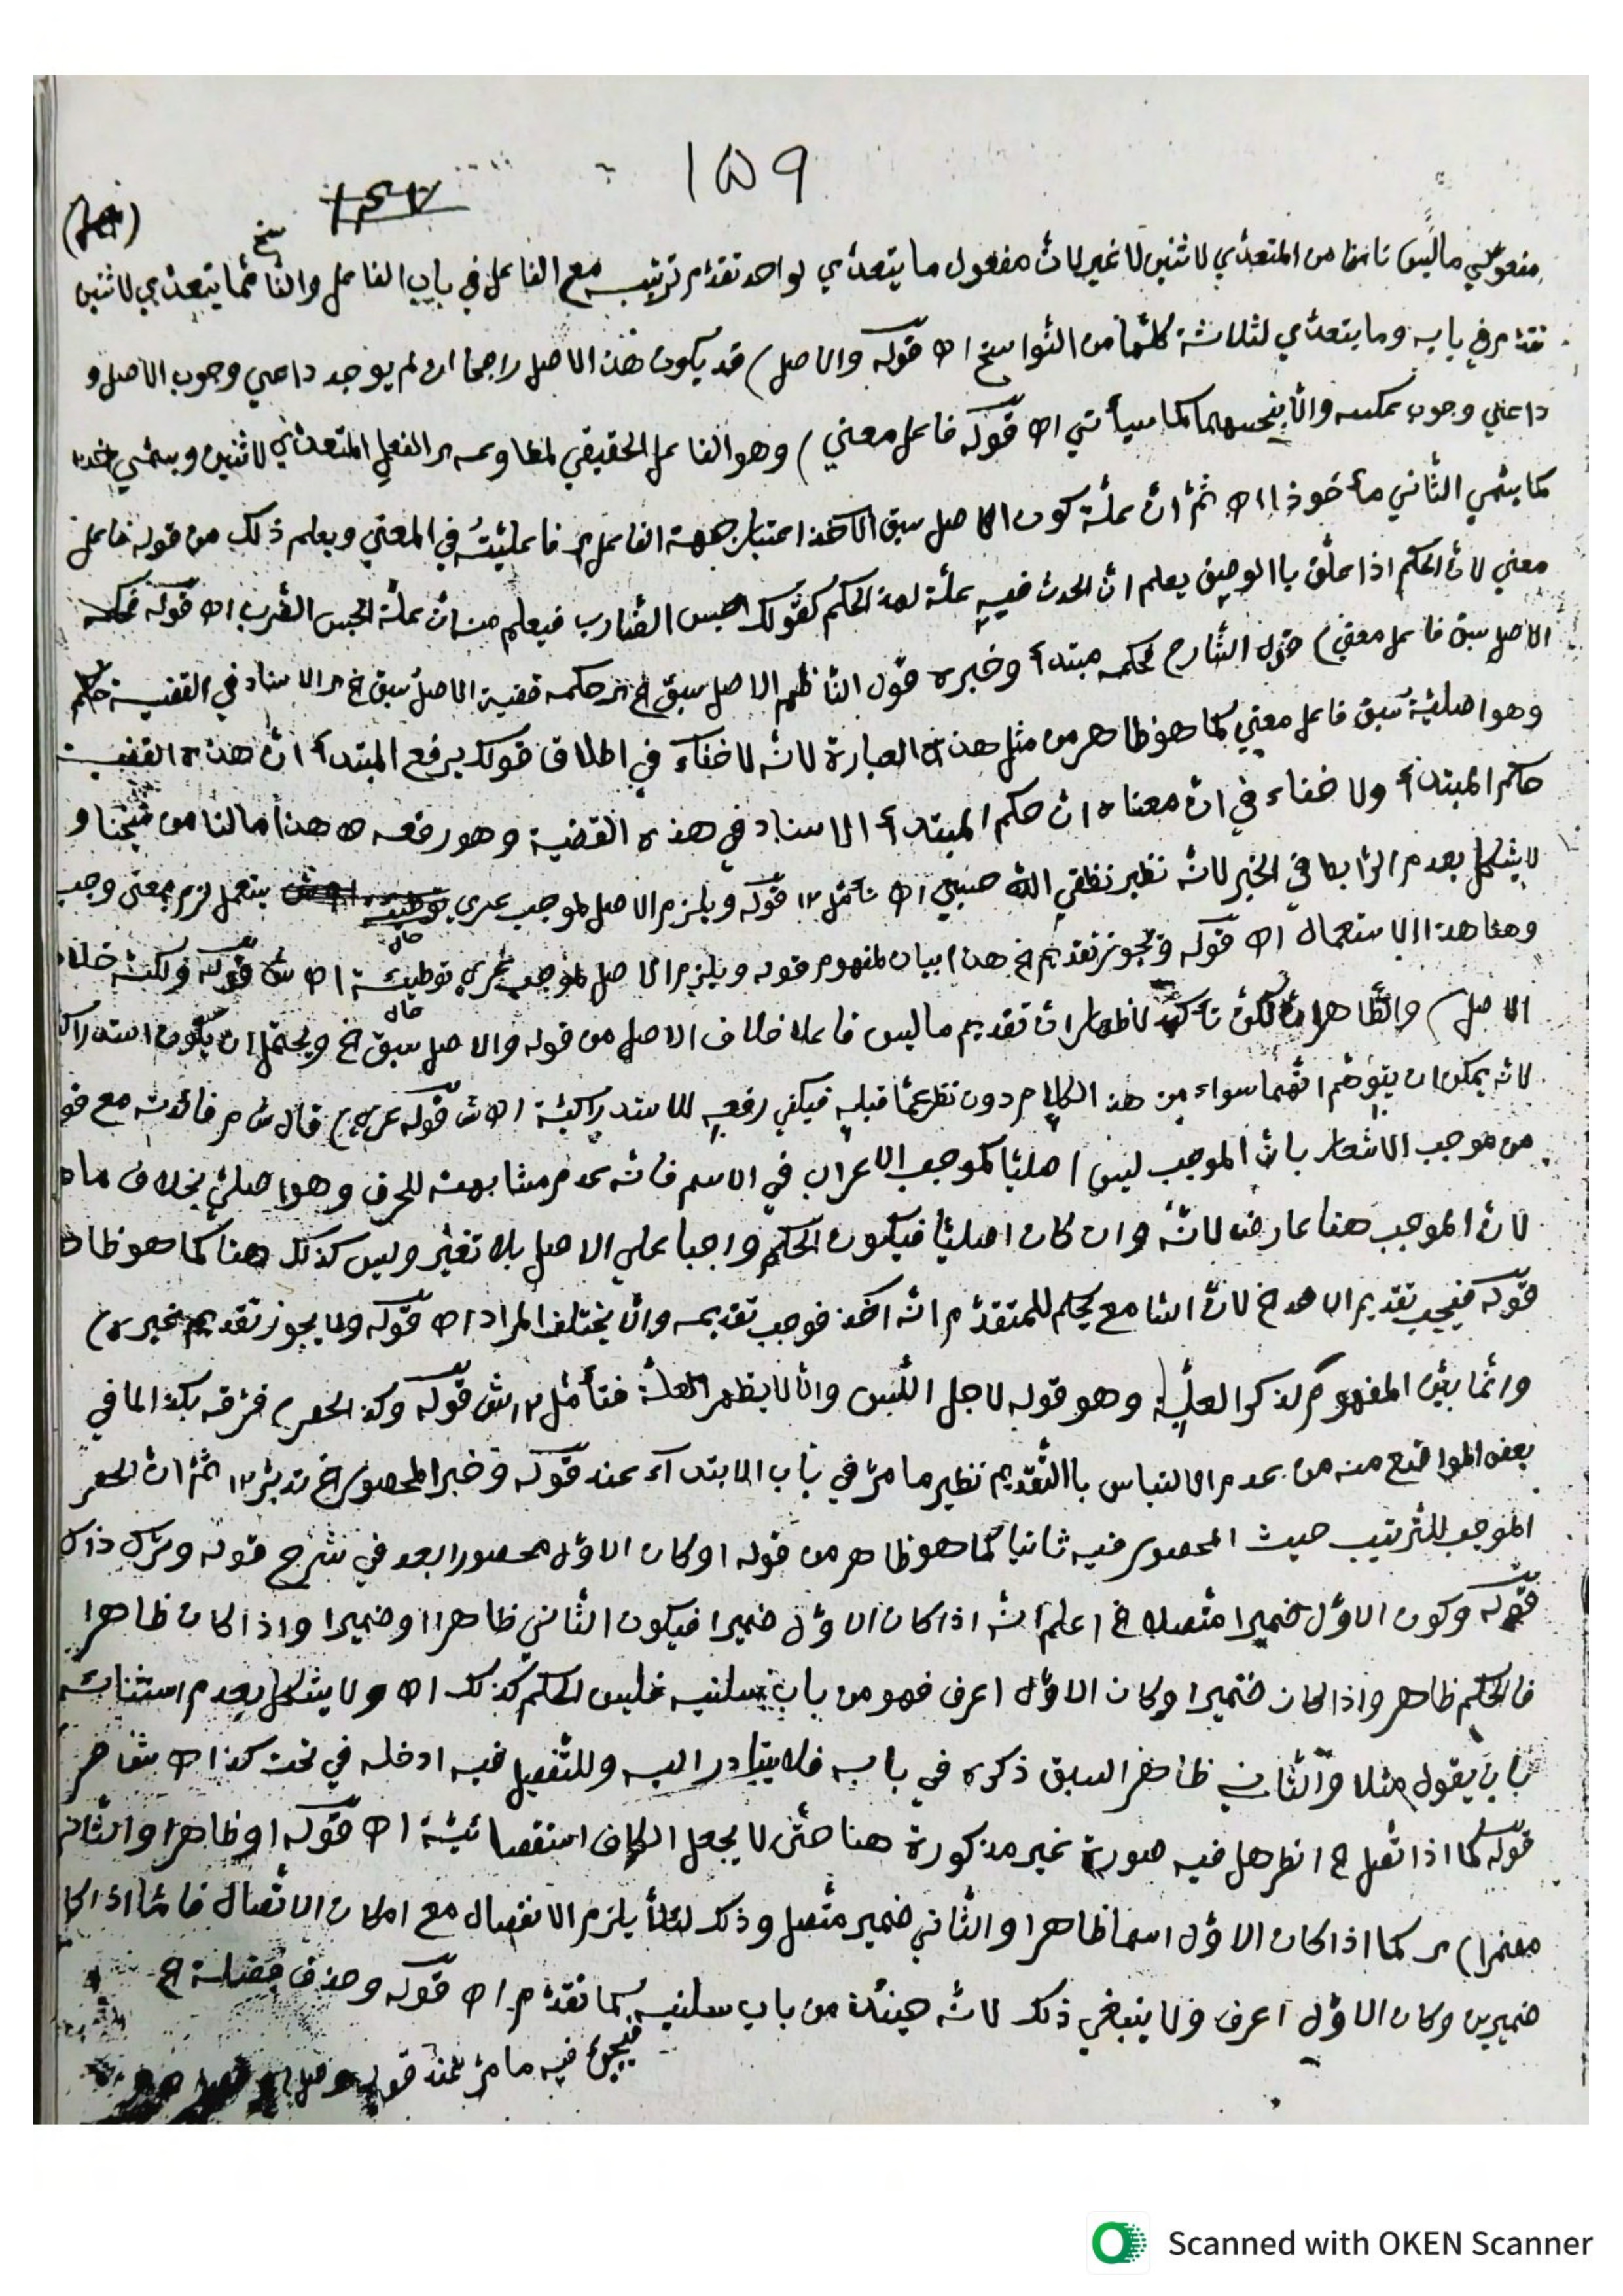 ١٥٩
مفعولي ما ليس ناسخا من المتعدّي لاثنين لا غير لانّ مفعول ما يتعدّي لواحد تقدّم ترتيبه مع الفاعل في باب الفاعل والنّاسخ ممّا يتعدّي لاثنين
تقدّم في بابه وما يتعدّي لثلاثة كلّها من النّواسخ اه قوله والاصل) قد يكون هذا الاصل راجحا ان لم يوجد داعي وجوب الاصل و
داعي وجوب عكسه والّا بحسبهما كما سيأتي اه قوله فاعل معني) وهو الفاعل الحقيقي لمطاوعه ار الفعل المتعدّي لاثنين ويسمّي
كما يسمّي الثّاني مأخوذا اه ثمّ انّ علّة كون الاصل سبق الآخذ اعتبار جهة الفاعل فاعليّته في المعني ويعلم ذلك من قوله فاعل
معني لانّ الحكم اذا علّق باالوصف يعلم انّ الحدث فيه علّة لهذ الحكم كقولك احبس الضّارب فيعلم منه انّ علّة الحبس الضّرب اه قوله فحكمه
الاصل سبق فاعل معني) قول الشّارح فحكمه مبتدأ وخبره قول النّاظم الاصل سبق الخ ار حكمه قضية الاصل سبق الخ ار الاسناد في القضية حكم
وهو اصليّة سبق فاعل معني كما هو ظاهر من مثل هذه العبارة لانّه لا خفآء في اطلاق قولك يرفع المبتدأ انّ هذه القضية
حكم المبتدأ ولا خفاء في انّ معناه انّ حكم المبتدأ الاسناد في هذه القضية وهو رفعه اه هذا ما لنا من شيخنا و
لا يشكل بعدم الرّابط في الخبر لانّه نظير نطقي اللّه حسبي اه تأمّل ١٢ قوله ويلزم الاصل لموجب عري يستعمل لزم بمعني وجب
وهنا هذا الاستعمال اه قوله فيجوز تقديم الخ هذا بيان لمفهوم قوله ويلزم الاصل لموجب عري توطيئة اه ش قوله ولكنّه خلاف
الاصل) والظّاهر انّ لكنّ تأكيد لاظهار انّ تقديم ما ليس فاعلا خلاف الاصل من قوله والاصل سبق الخ ويحتمل ان يكون استدراكا
لانّه يمكن ان يتوهّم انّهما سواء من هذ الكلام دون نظر عمّا قبله فيكفي رفعه للاستدراكيّة اه ش قوله عري) قال ش م فائدته مع
من موجب الاشعار بانّ الموجب ليس اصليّا كموجب الاعراب في الاسم فانّه عدم مشابهته للحرف وهو اصليّ بخلاف ما
لانّ الموجب هنا عارض لانّه وان كان اصليّا فيكون الحكم واجبا علي الاصل بلا تغيّر وليس كذلك هنا كما هو ظاهر
قوله فيجب تقديم الاخذ الخ لانّ السّامع يحكم للمتقدّم انّه آخذ فوجب تقديمه والّا يختلف المراد اه قوله ولا يجوز تقديم غيره)
وانّما بيّن المفهوم لذكر العلّة وهو قوله لاجل اللّبس والّا لا يظهر العلّة فتأمّل ١٢ ش قوله وكذ الحصر) فرّقه بكذا لما في
بعض المواضع منه من عدم الالتباس باالتّقديم نظير ما مرّ في باب الابتدآء عند قوله وخبر المحصور الخ تدبّر ١٢ ثمّ انّ الحصر
الموجب للتّرتيب حيث المحصور فيه ثانيا كما هو ظاهر من قوله او كان الاوّل محصورا بعد في شرح قوله وترك ذاك
قوله وكون الاوّل ضميرا متّصلا الخ اعلم انّه اذا كان الاوّل ضميرا فيكون الثّاني ظاهرا او ضميرا واذا كان ظاهرا
فالحكم ظاهر واذا كان ضميرا وكان الاوّل اعرف فهو من باب سلنيه فليس الحكم كذلك اه ولا يشكل بعدم استثنائه
بان يقول مثلا والثّاني ظاهر السبق ذكره في بابه فلا يتبادر اليه وللتّفصيل فيه ادخله في تحت كذا اه
قوله كما اذا تّصل الخ انظر هل فيه صورة غير مذكورة هنا حتّي لا يجعل الكاف استقصائيّة اه قوله او ظاهرا والثّاني
مضمرا) ار كما اذا كان الاوّل اسما ظاهرا والثّاني ضمير متّصل وذلك لئلّا يلزم الانفصال مع امكان الاتّصال فامّا اذا كا
ضميرين وكان الاوّل اعرف فلا ينبغي ذلك لانّه حينئذ من باب سلنيه كما تقدّم اه قوله وحذف فضلة الخ
فيجئ فيه ما مرّ عند قوله
Scanned with OKEN Scanner